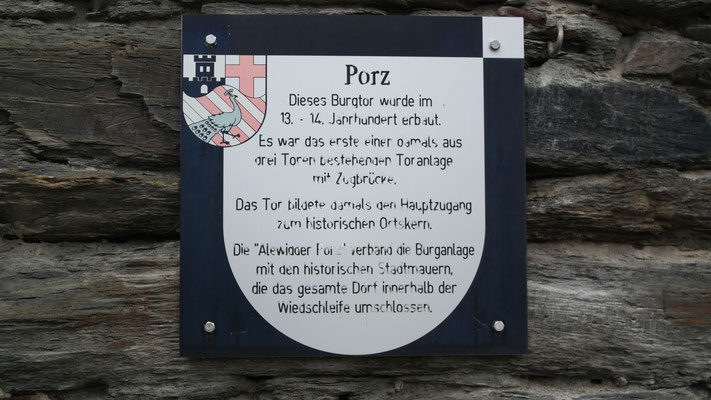 Porz
Dieses Burgtor wurde im
13. - 14. Jahrhundert erbaut.
Es war das erste einer damals aus
drei Toren bestehenden Toranlage
mit Zugbrücke.
Das Tor bildete damals den Hauptzugang
zum historischen Ortskern.
Die "Alewidder Porz" verband die Burganlage
mit den historischen Stadtmauern,
die das gesamte Dorf innerhalb der
Wiedschleife umschlossen.